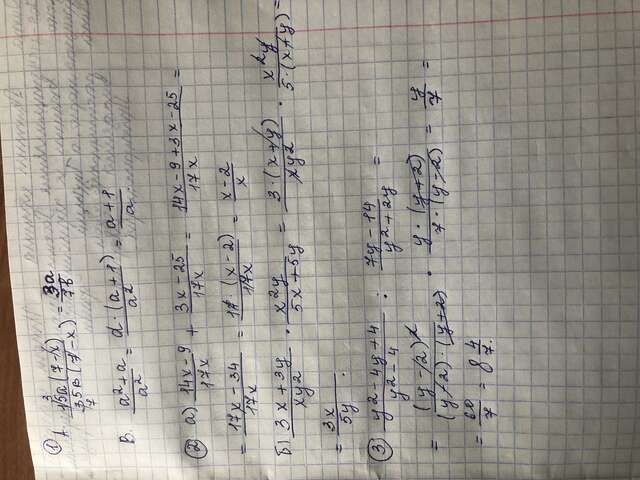 ① А. 15a(7-x)/35b(7-x) = 3a/7b
В. a²+a/a² = a·(a+1)/a² = a+1/a.
② а) 14x-9/17x + 3x-25/17x = 14x-9+3x-25/17x =
= 17x-34/17x = 17·(x-2)/17x = x-2/x
б) 3x+3y/xy² · x²y/5x+5y = 3·(x+y)/xy² · x²y/5·(x+y) =
= 3x/5y.
③ y²-4y+4/y²-4 : 7y-14/y²+2y =
= (y-2)²/(y-2)·(y+2) · y·(y+2)/7·(y-2) = y/7 =
= 60/7 = 8 4/7.